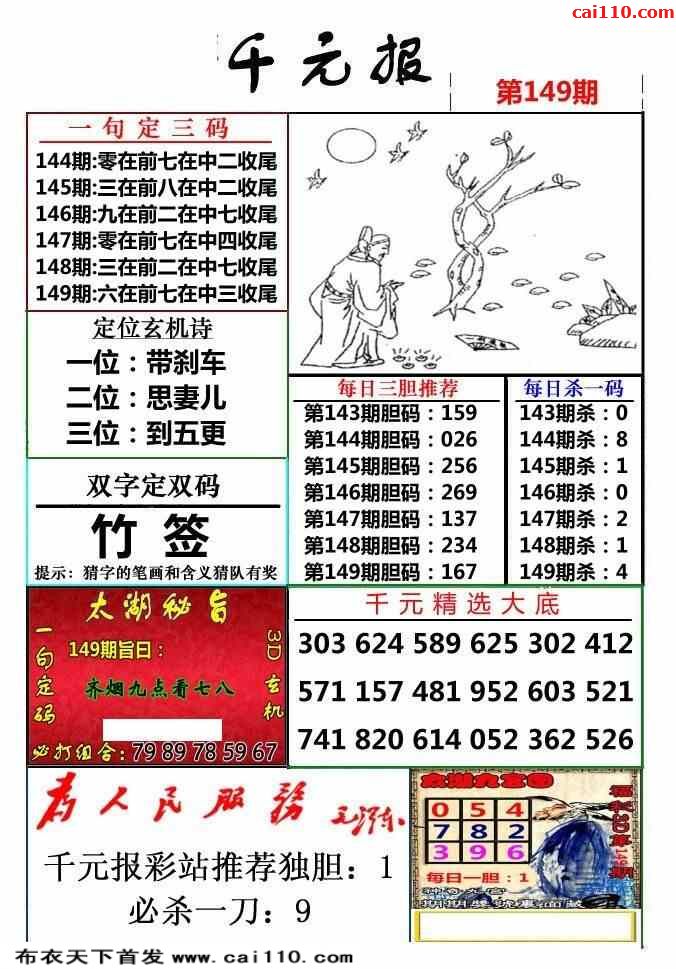 cai110.com
千元报
第149期
一句定三码
144期:零在前七在中二收尾
145期:三在前八在中二收尾
146期:九在前二在中七收尾
147期:零在前七在中四收尾
148期:三在前二在中七收尾
149期:六在前七在中三收尾
定位玄机诗
一位：带刹车
二位：思妻儿
三位：到五更
双字定双码
竹签
提示：猜字的笔画和含义猜队有奖
每日三胆推荐
第143期胆码：159
第144期胆码：026
第145期胆码：256
第146期胆码：269
第147期胆码：137
第148期胆码：234
第149期胆码：167
每日杀一码
143期杀：0
144期杀：8
145期杀：1
146期杀：0
147期杀：2
148期杀：1
149期杀：4
太湖秘旨
一句定码
149期旨曰：
齐烟九点看七八
3D玄机
必打组合：79 89 78 59 67
千元精选大底
303 624 589 625 302 412
571 157 481 952 603 521
741 820 614 052 362 526
为人民服务
毛泽东
千元报彩站推荐独胆：1
必杀一刀：9
太湖九宫图
0 5 4
7 8 2
3 9 6
每日一胆：1
福彩3D第149期
布衣天下首发 www.cai110.com